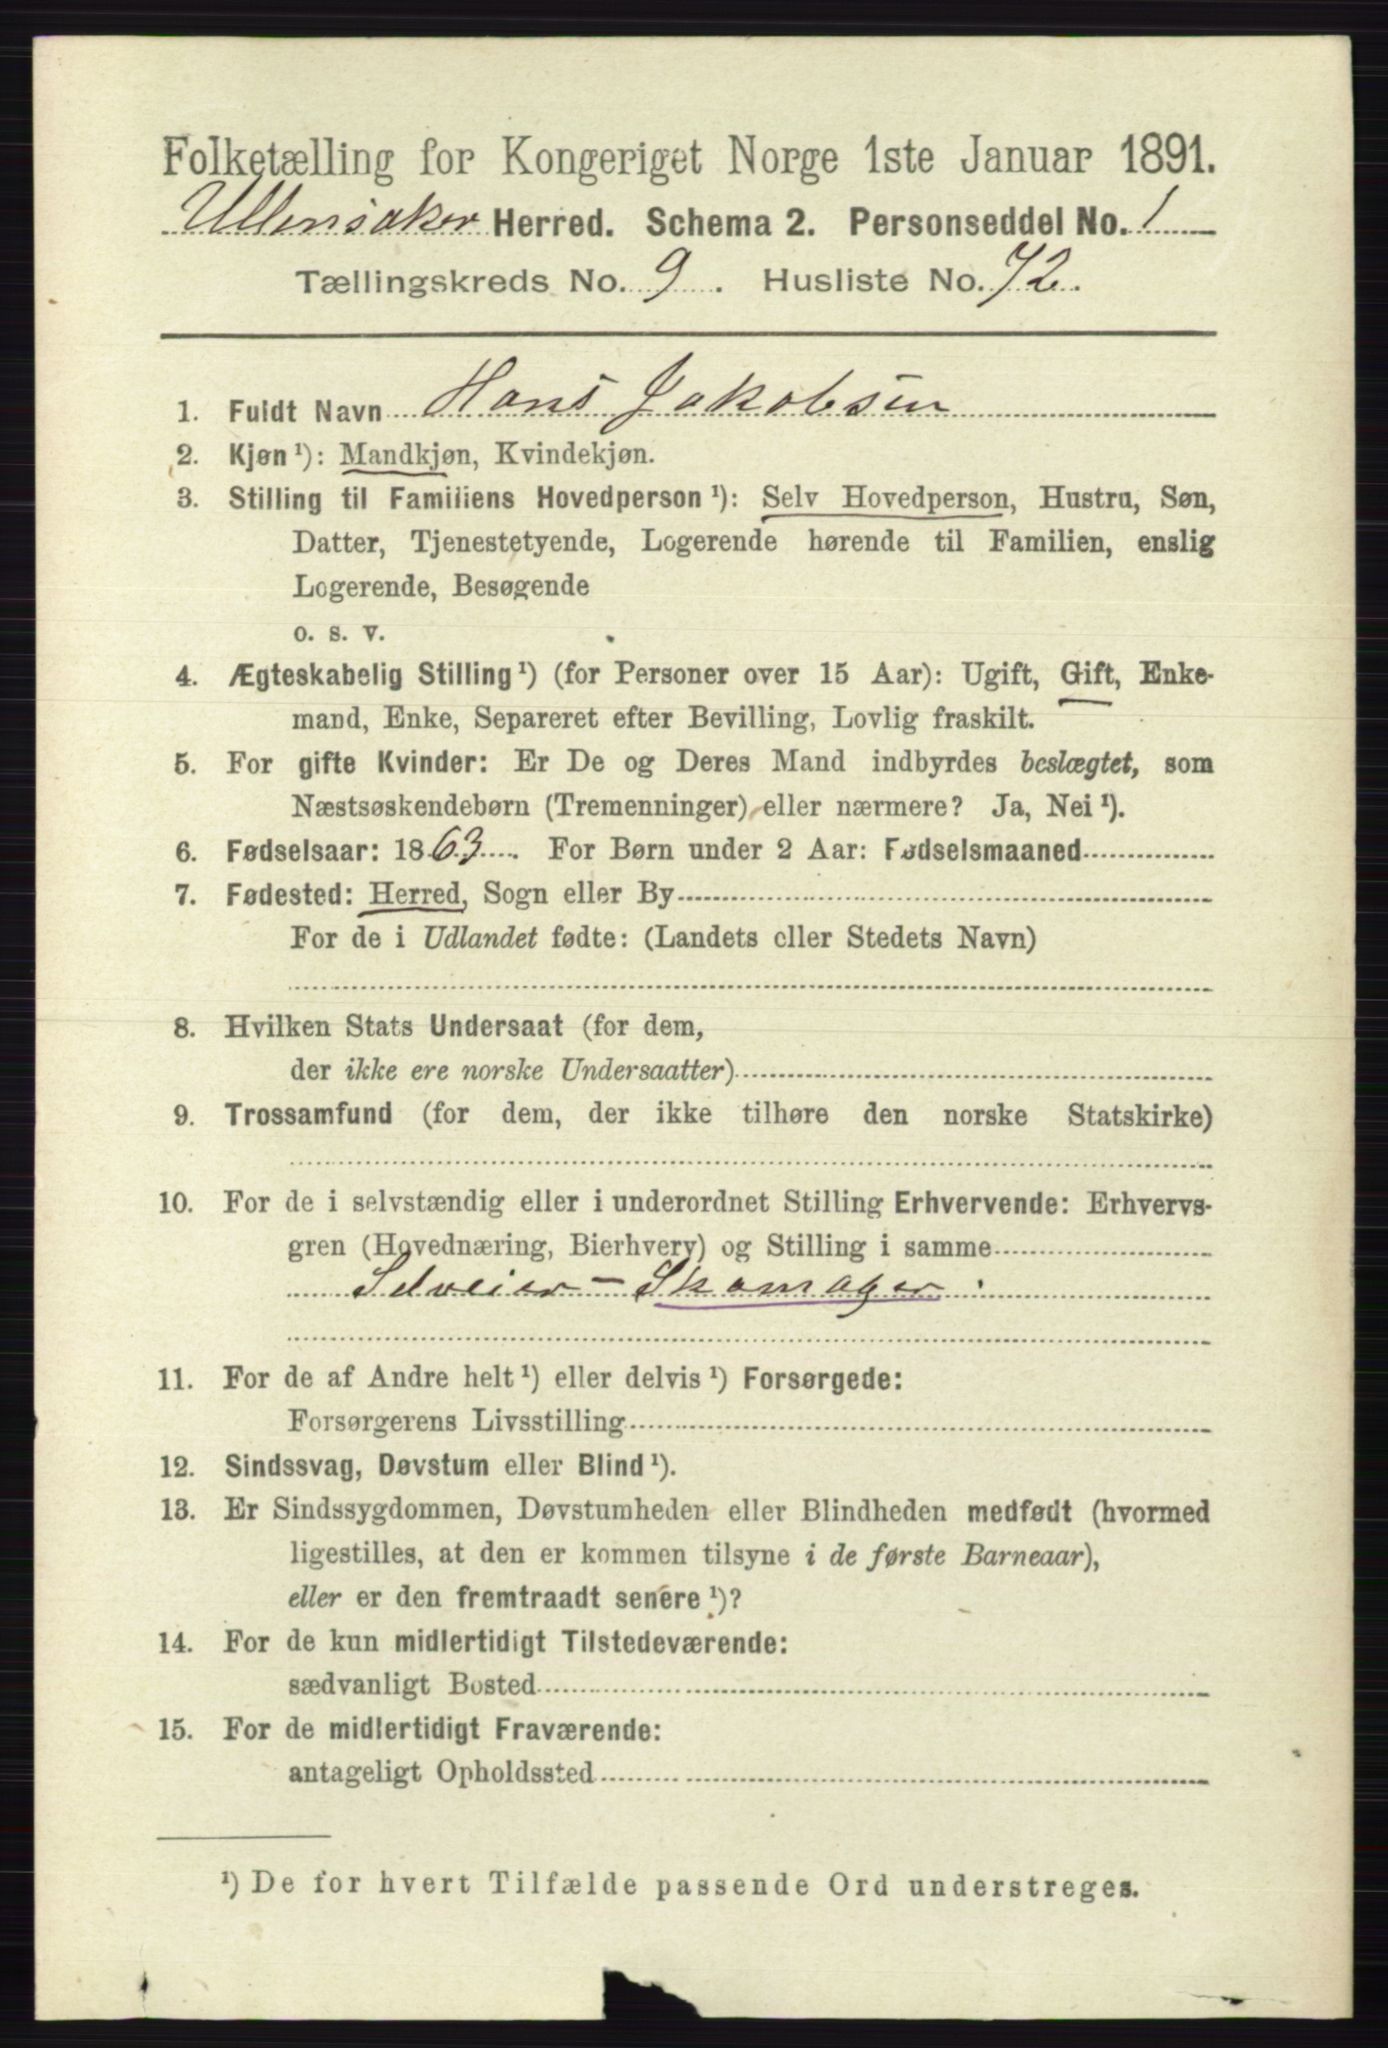 Folketælling for Kongeriget Norge 1ste Januar 1891.
Ullensaker Herred. Schema 2. Personseddel No. 1
Tællingskreds No. 9. Husliste No. 72.
1. Fuldt Navn Hans Jakobsen
2. Kjøn ¹): Mandkjøn, Kvindekjøn.
3. Stilling til Familiens Hovedperson ¹): Selv Hovedperson, Hustru, Søn,
Datter, Tjenestetyende, Logerende hørende til Familien, enslig
Logerende, Besøgende
o. s. v.
4. Ægteskabelig Stilling ¹) (for Personer over 15 Aar): Ugift, Gift, Enke-
mand, Enke, Separeret efter Bevilling, Lovlig fraskilt.
5. For gifte Kvinder: Er De og Deres Mand indbyrdes beslægtet, som
Næstsøskendebørn (Tremenninger) eller nærmere? Ja, Nei ¹).
6. Fødselsaar: 1863. For Børn under 2 Aar: Fødselsmaaned
7. Fødested: Herred, Sogn eller By
For de i Udlandet fødte: (Landets eller Stedets Navn)
8. Hvilken Stats Undersaat (for dem,
der ikke ere norske Undersaatter)
9. Trossamfund (for dem, der ikke tilhøre den norske Statskirke)
10. For de i selvstændig eller i underordnet Stilling Erhvervende: Erhvervs-
gren (Hovednæring, Bierhverv) og Stilling i samme
Selveier - Skomager
11. For de af Andre helt ¹) eller delvis ¹) Forsørgede:
Forsørgerens Livsstilling
12. Sindssvag, Døvstum eller Blind ¹).
13. Er Sindssygdommen, Døvstumheden eller Blindheden medfødt (hvormed
ligestilles, at den er kommen tilsyne i de første Barneaar),
eller er den fremtraadt senere ¹)?
14. For de kun midlertidigt Tilstedeværende:
sædvanligt Bosted
15. For de midlertidigt Fraværende:
antageligt Opholdssted
¹) De for hvert Tilfælde passende Ord understreges.